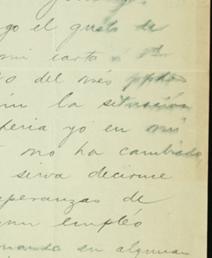 go el gusto de
mi carta a
del mes ppdo
la situación
yo en mi
no ha cambiado
serva decirme
speranzas de
un empléo
en alguna